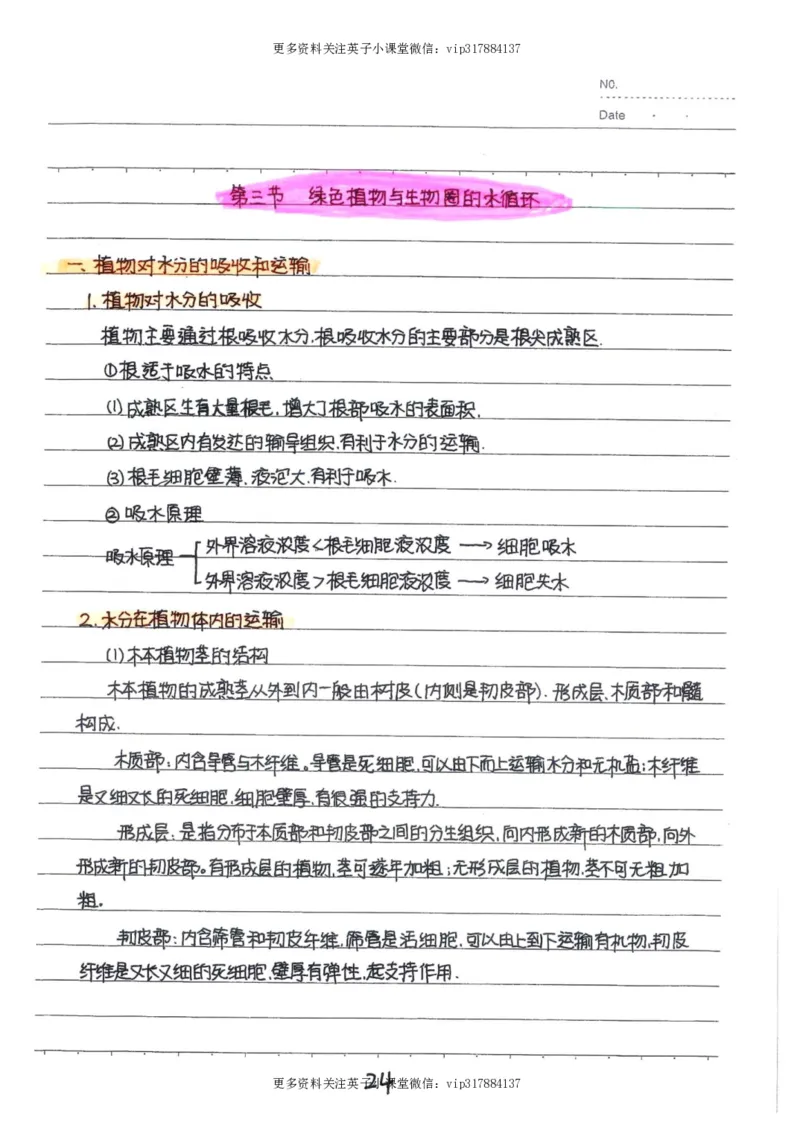 更多资料关注英子小课堂微信：vip317884137
NO.
Date
第三节 绿色植物与生物圈的水循环
一、植物对水分的吸收和运输
1.植物对水分的吸收
植物主要通过根吸收水分.根吸收水分的主要部分是根尖成熟区.
①根适于吸水的特点
(1)成熟区生有大量根毛,增大了根部吸水的表面积.
(2)成熟区内有发达的输导组织,有利于水分的运输.
(3)根毛细胞壁薄,液泡大,有利于吸水.
②吸水原理
外界溶液浓度<根毛细胞液浓度→细胞吸水
吸水原理
外界溶液浓度>根毛细胞液浓度→细胞失水
2.水分在植物体内的运输
(1)木本植物茎的结构
木本植物的成熟茎从外到内一般由树皮(内侧是韧皮部).形成层、木质部和髓
构成.
木质部:内含导管与木纤维。导管是死细胞,可以由下而上运输水分和无机盐;木纤维
是又细又长的死细胞,细胞壁厚,有很强的支持力.
形成层:是指分布于木质部和韧皮部之间的分生组织,向内形成新的木质部,向外
形成新的韧皮部。有形成层的植物,茎可逐年加粗;无形成层的植物,茎不可无粗加
粗。
韧皮部:内含筛管和韧皮纤维,筛管是活细胞,可以由上到下运输有机物,韧皮
纤维是又长又细的死细胞,壁厚有弹性,起支持作用.
更多资料关注英子小课堂微信：vip317884137
24